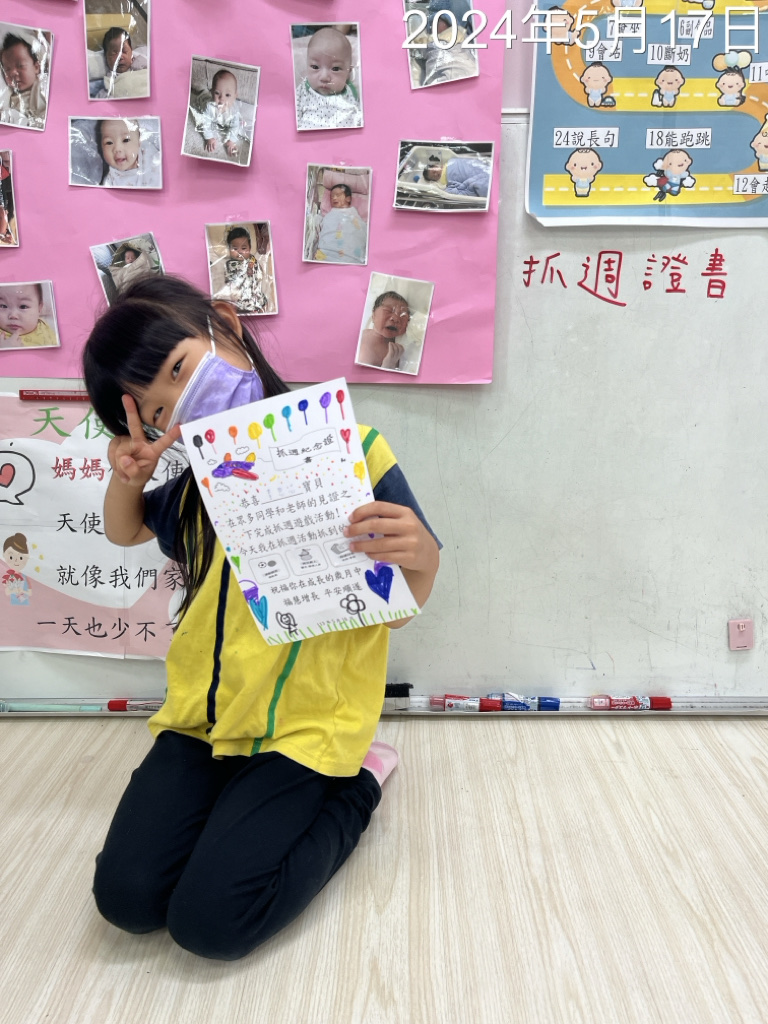 2024年5月17日
9會站
10斷奶
24說長句
18能跑跳
抓週證書
天使
媽媽
天使
就像我們家
一天也少不了
抓週紀念證
書
恭喜 寶貝
在眾多同學和老師的見證之
下完成抓週遊戲活動!
今天我在抓週活動抓到的
祝福你在成長的歲月中
福慧增長 平安順遂